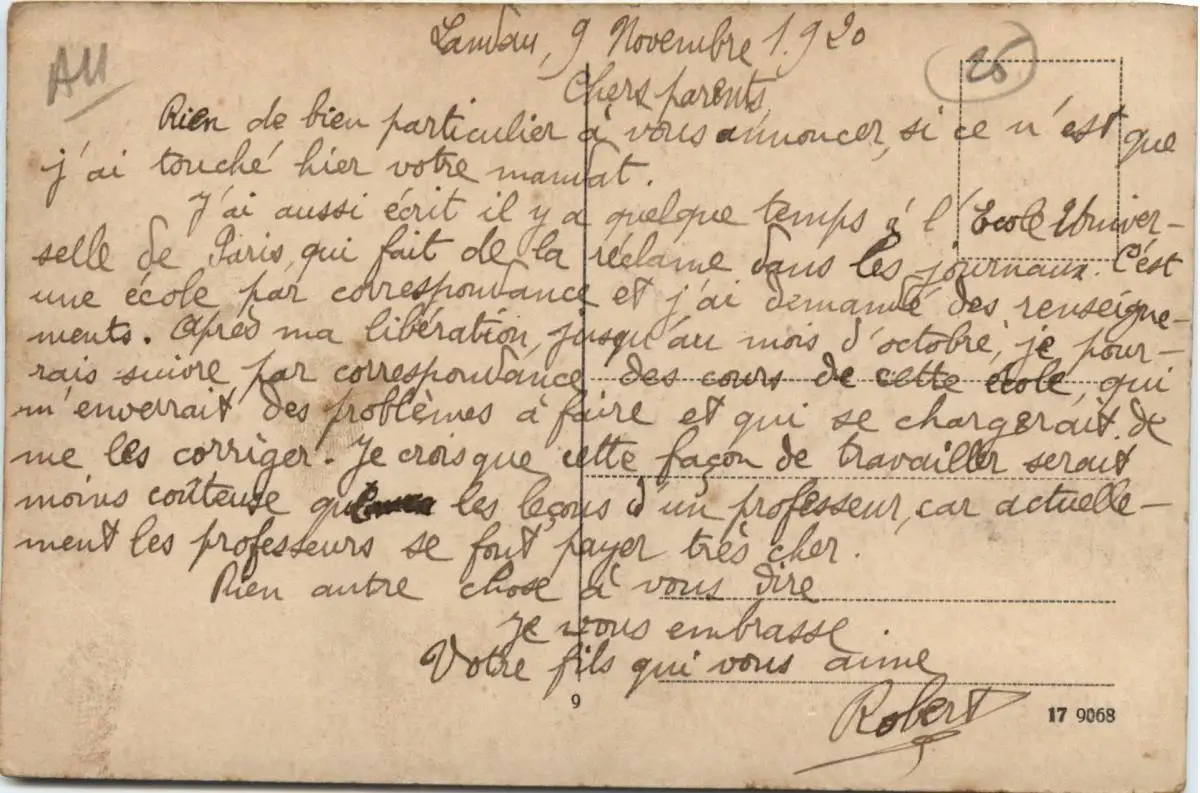 Landau, 9 Novembre 1.920
All
25
Chers parents,
Rien de bien particulier à vous annoncer, si ce n'est que
j'ai touché hier votre mandat.
J'ai aussi écrit il y a quelque temps à l'École Univer-
selle de Paris, qui fait de la réclame dans les journaux. C'est
une école par correspondance et j'ai demandé des renseigne-
ments. Après ma libération, jusqu'au mois d'octobre, je pour-
rais suivre, par correspondance, des cours de cette école, qui
m'enverrait des problèmes à faire et qui se chargerait de
me les corriger. Je crois que cette façon de travailler serait
moins coûteuse que les leçons d'un professeur, car actuelle-
ment les professeurs se font payer très cher.
Rien autre chose à vous dire
Je vous embrasse.
Votre fils qui vous aime
Robert
9
17 9068